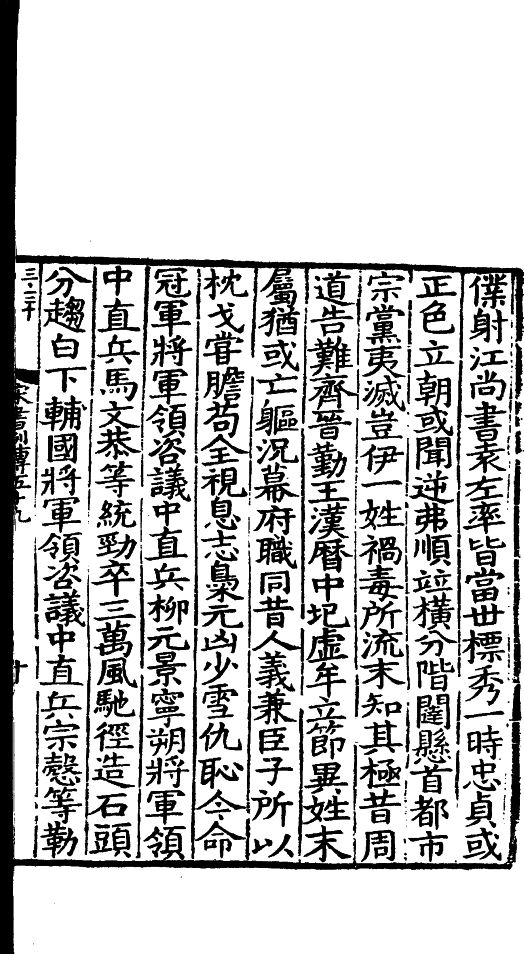 僕射江尚書袁左率皆當世標秀一時忠貞或
正色立朝或聞逆弗順竝橫分階闥懸首都市
宗黨夷滅豈伊一姓禍毒所流末知其極昔周
道告難齊晉勤王漢曆中圮虛牟立節異姓末
屬猶或亡軀況幕府職同昔人義兼臣子所以
枕戈嘗膽苟全視息志梟元凶少雪仇恥今命
冠軍將軍領咨議中直兵柳元景寧朔將軍領
中直兵馬文恭等統勁卒三萬風馳徑造石頭
分趨白下輔國將軍領咨議中直兵宗愨等勒
三·二千
宋書列傳五十九
十